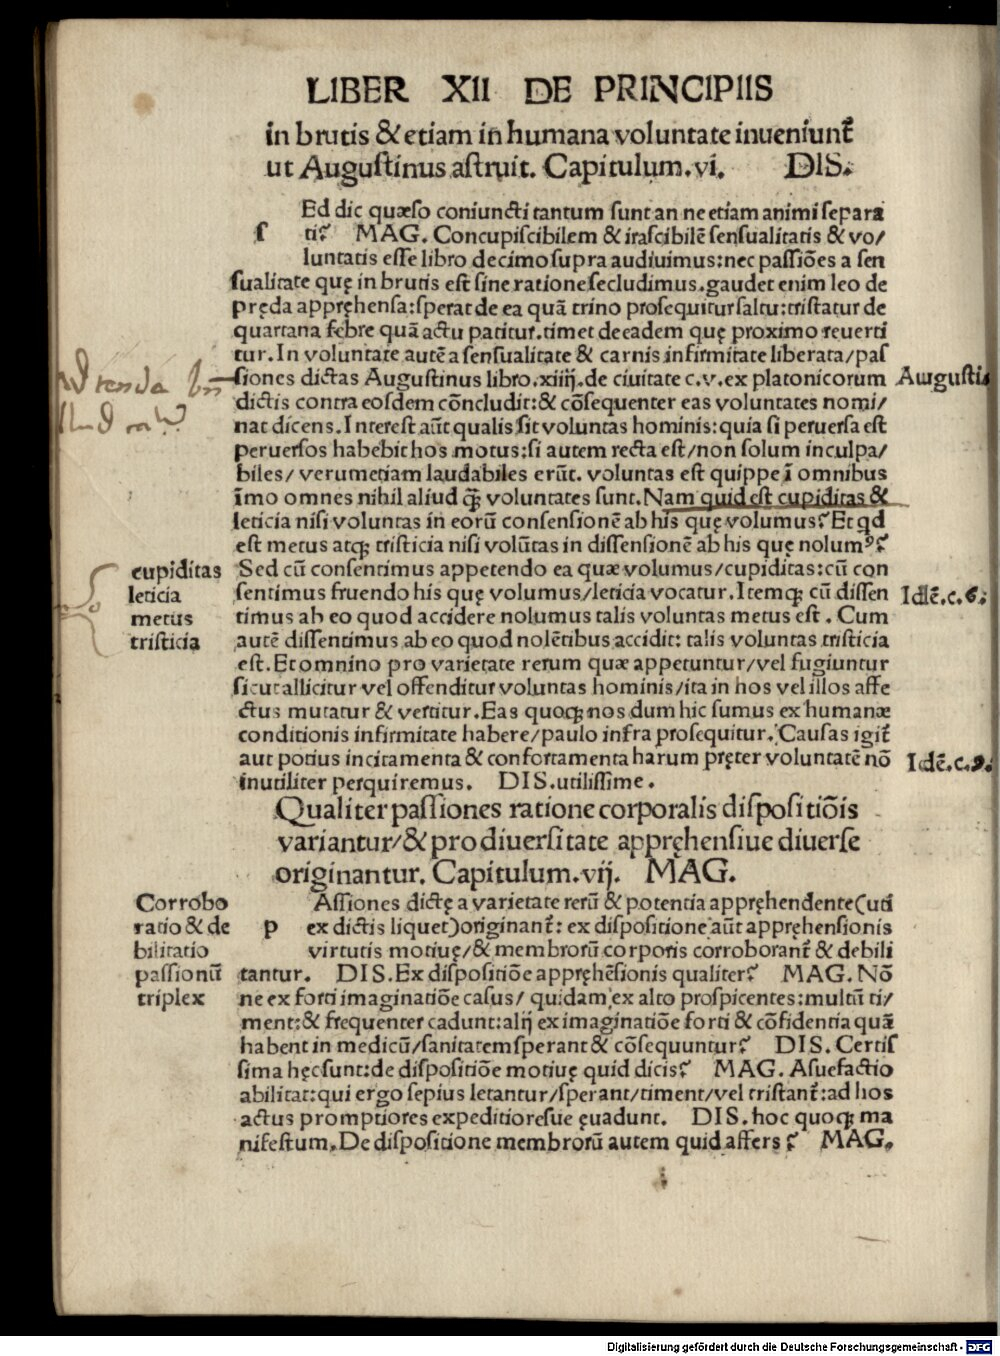 LIBER XII DE PRINCIPIIS
in brutis & etiam in humana voluntate inueniunt᷑
ut Augustinus astruit. Capitulum.vi. DIS.
Ed dic quæso coniuncti tantum sunt an ne etiam animi separa
s ti? MAG. Concupiscibilem & irascibilē sensualitatis & vo/
luntatis esse libro decimo supra audiuimus: nec passiōes a sen
sualitate quę in brutis est sine ratione secludimus. gaudet enim leo de
pręda appręhensa: sperat de ea quā trino prosequitur saltu: tristatur de
quartana febre quā actu patitur. timet de eadem quę proximo reuerti
tur. In voluntate autē a sensualitate & carnis infirmitate liberata/pas
siones dictas Augustinus libro.xiiij.de ciuitate c.v.ex platonicorum
Augustis
dictis contra eosdem cōncludit: & cōsequenter eas voluntates nomi/
nat dicens. Interest aūt qualis sit voluntas hominis: quia si peruersa est
peruersos habebit hos motus: si autem recta est/non solum inculpa/
biles/ verumetiam laudabiles erūt. voluntas est quippe ī omnibus
īmo omnes nihil aliud q̄ꝫ voluntates sunt. Nam quid est cupiditas &
leticia nisi voluntas in eorū consensionē ab his quę volumus? Et qd
est metus atqꝫ tristicia nisi volūtas in dissensionē ab his quę nolumꝰ?
cupiditas
leticia
metus
tristicia
Sed cū consentimus appetendo ea quæ volumus/cupiditas: cū con
sentimus fruendo his quę volumus/leticia vocatur. Itemqꝫ cū dissen
Idē.c.6.
timus ab eo quod accidere nolumus talis voluntas metus est. Cum
autē dissentimus ab eo quod nolētibus accidit: talis voluntas tristicia
est. Et omnino pro varietate rerum quæ appetuntur/vel fugiuntur
sicut allicitur vel offenditur voluntas hominis/ita in hos vel illos affe
ctus mutatur & vertitur. Eas quoqꝫ nos dum hic sumus ex humanæ
conditionis infirmitate habere/paulo infra prosequitur. Causas igit᷑
aut potius incitamenta & confortamenta harum pręter voluntatē nō
Idē.c.9.
inutiliter perquiremus. DIS. utilissime.
Qualiter passiones ratione corporalis dispositiōis
variantur/& pro diuersitate appręhensiue diuerse
originantur. Capitulum.vij. MAG.
Corrobo
ratio & de
bilitatio
passionū
triplex
Assiones dictę a varietate rerū & potentia appręhendente(uti
p ex dictis liquet)originant᷑: ex dispositione aūt appręhensionis
virtutis motiuę/& membrorū corporis corroborant᷑ & debili
tantur. DIS. Ex dispositiōe appręhēsionis qualiter? MAG. Nō
ne ex forti imaginatiōe casus/ quidam ex alto prospicentes: multū ti/
ment: & frequenter cadunt: alij ex imaginatiōe forti & cōfidentia quā
habent in medicū/sanitatem sperant & cōsequuntur? DIS. Certis
sima hęc sunt: de dispositiōe motiuę quid dicis? MAG. Asuefactio
abilitat: qui ergo sepius letantur/sperant/timent/vel tristant᷑: ad hos
actus promptiores expeditioresue ęuadunt. DIS. hoc quoqꝫ ma
nifestum. De dispositione membrorū autem quid affers? MAG.
Digitalisierung gefördert durch die Deutsche Forschungsgemeinschaft - DFG